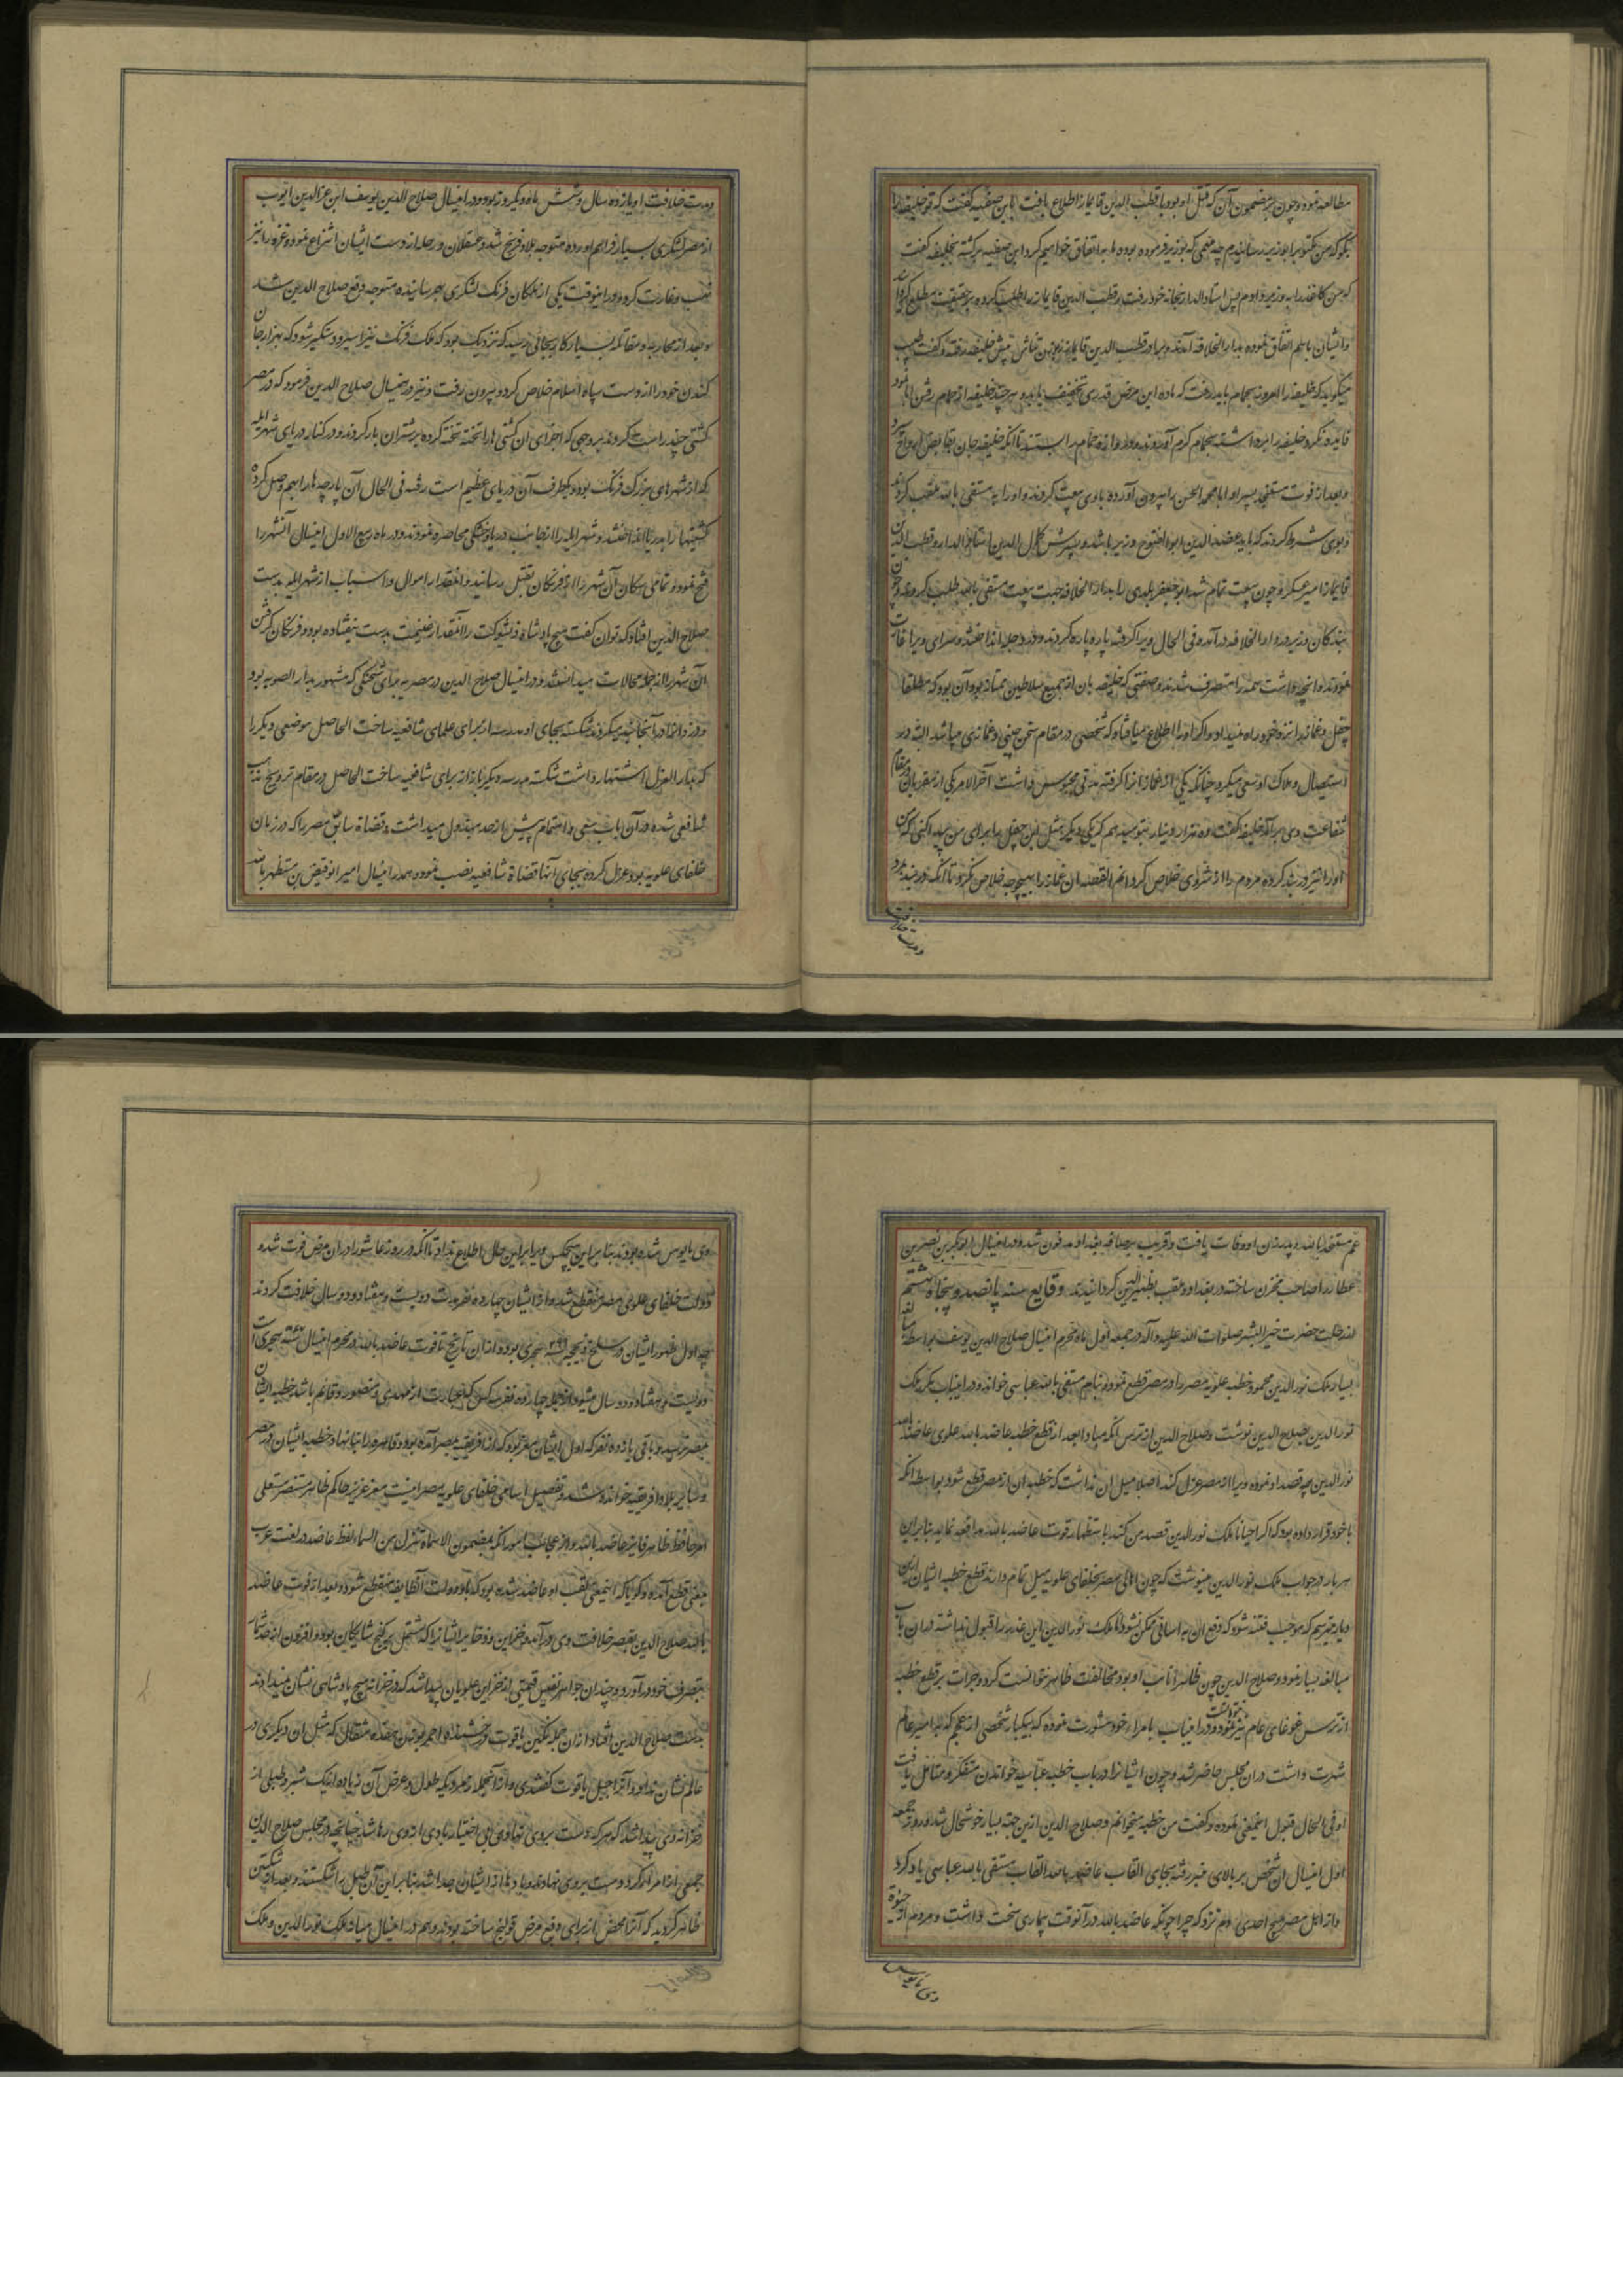 مطالعه نمود و چون بر مضمون آن که قتل او بود با قطب الدین قایماز اطلاع یافت بابن صفیه گفت که تو خلیفه را
بگو که من مکتوب را بوزیر رسانیدم چه مهمی که بوزیر فرموده بوده ما به اتفاق خواهیم کرد ابن صفیه برگشته بخلیفه گفت
که من کاغذ را به وزیر دادم پس استادالدار از خانه خود رفت بر قطب الدین قایماز را طلب کرده بر حقیقت مطلع گردانید
و ایشان باهم اتفاق نموده بدار الخلافه آمدند و برادر قطب الدین قایماز پیش خلیفه رفته و گفت طبیب
میگوید که خلیفه را امروز بحمام باید رفت که ماده این مرض قدری تخفیف یابد و هر چند خلیفه از حمام رفتن ابا نمود
فایده نکرد خلیفه را برداشته بحمام گرم آوردند و در و ازه حمام را بستند تا آنکه خلیفه جان بقابض ارواح سپرد
و بعد از فوت مستنجد پسر او ابا محمد الحسن را بیرون آورده باوی بیعت کردند و او را به مستضی بالله ملقب کردند
و بوی شرط کردند که باید عضد الدین ابوالفتوح وزیر باشد و پسرش کمال الدین استاد الدار و قطب الدین
قایماز امیر عسکر و چون بیعت تمام شد ابو جعفر بلدی را بدار الخلافه جهت بیعت مستضی بالله طلب کردند و چون
بندگان وزیر در دار الخلافه درآمد فی الحال ویرا گرفته پاره پاره کردند و در دجله انداختند و سرای ویرا غارت
نمودند و آنچه داشت همه را متصرف شدند و صفتی که خلیفه بان از جمیع سلاطین ممتاز بود آن بود که مطلقا
چقل و غماز را نزد خود راه نمیداد و اگر او را اطلاع میافتاد که شخصی در مقام سخن چینی و غمازی میباشد البته در
استیصال و هلاک او سعی میکرد چنانکه یکی از غمازانرا گرفته مدتی محبوس داشت آخر الامر یکی از مقربان در مقام
شفاعت وی برآمد خلیفه گفت ده هزار دینار بتو میدهم که یکی دیگر مثل این چقل را برای من پیدا کنی که من
او را نیز در بند کرده مردم را از شر وی خلاص گردانم القصه ان غماز را بهیچوجه خلاص نکرد تا آنکه در بند بمرد
و مدت خلافت
و مدت خلافت او یازده سال و شش ماه و یکروز بود و در اینسال صلاح الدین یوسف ابن عزالدین ایوب
از مصر لشکری بسیار فراهم اورده متوجه بلاد فرنج شد و عسقلان و رمله از دست ایشان انتزاع نمود و غزه را نیز
نهب و غارت کرد و در اینوقت یکی از ملکان فرنک لشکری بهم رسانیده متوجه دفع صلاح الدین شد
و بعد از محاربه و مقاتله بسیار کار بجائی رسید که نزدیک بود که ملک فرنک نیز اسیر و دستگیر شود که بهزار جان
کندن خود را از دست سپاه اسلام خلاص کرده بیرون رفت و نیز در ینسال صلاح الدین فرمود که در مصر
کشتی چند راست کردند بر وجهی که اجزای ان کشتی ها را تخته تخته کرده بر شتران بار کردند و در کنار دریای شهر ایله
که از شهرهای بزرک فرنک بود و یکطرف آن دریای عظیم است رفته فی الحال آن پارچه ها را بهم وصل کرده
کشتیها را بدریا انداختند و شهر ایله را از جانب دریا و خشکی محاصره نمودند و در ماه ربیع الاول اینسال آنشهر را
فتح نموده و تمامی سکان آن شهر را از فرنکان بقتل رسانیدند و آنقدر اموال و اسباب از شهر ایله بدست
صلاح الدین افتاد که توان گفت هیچ پادشاه ذیشوکت را آنقدر از غنیمت بدست نیفتاده بود و فرنکان گرفتن
آن شهر را از جمله محالات میدانستند و در اینسال صلاح الدین در مصر سرای شحنگی که مشهور بدار المعونه بود
و دزدانرا در آنجا حبس میکردند شکسته بجای او مدرسه از برای علمای شافعیه ساخت الحاصل موضعی دیگر را
که بدار العزل اشتهار داشت شکسته مدرسه دیگر باز از برای شافعیه ساخت الحاصل در مقام ترویج مذهب
شافعی شده در آن باب سعی و اهتمام بیش از حد مبذول میداشت و قضاة سابق مصر را که در زمان
خلفای علویه بود عزل کرده بجای آنها قضاة شافعیه نصب نمود و هم در اینسال امیر ابو نصر بن مستظهر بالله
عم مستنجد بالله و پدر زن او وفات یافت و قریب برصافه بغداد مدفون شد و در اینسال ابو بکر بن نصر بن
عطار را صاحب مخزن ساخته در بغداد و ملقب بظهیر الدین گردانیدند وقایع سنه پانصد و پنجاه و ششم
از رحلت حضرت خیر البشر صلوات الله علیه و آله در جمعه اول ماه محرم اینسال صلاح الدین یوسف بواسطه مبالغه
بسیار ملک نور الدین محمود خطبه علویه مصر را در مصر قطع نمود و بنام مستضی بالله عباسی خواند و در اینباب مکرر ملک
نور الدین بصلاح الدین نوشت و صلاح الدین از ترس آنکه مبادا بعد از قطع خطبه عاضد بالله علوی عاضد بالله
نور الدین چه قصد او نموده ویرا از مصر عزل کند اصلا میل ان نداشت که خطبه ان از مصر قطع شود بواسطه آنکه
با خود قرار داده بود که اگر احیانا ملک نور الدین قصد من کند باستظهار قوت عاضد بالله مدافعه نماید بنابراین
هر بار در جواب ملک نور الدین مینوشت که چون اهالی مصر بخلفای علویه میل تمام دارند قطع خطبه ایشان ازین
دیار میترسم که موجب فتنه شود که دفع ان به آسانی ممکن نشود تا ملک نور الدین این عذر را قبول نداشته در ان باب
مبالغه بسیار نمود و صلاح الدین چون ظاهرا نایب او بود مخالفت ظاهر نتوانست کرد و جرات بر قطع خطبه
از ترس غوغای عام نیز نمیتوانست نمود و در اینباب با مرای خود مشورت نموده که بیکبار شخصی از عجم که بامیر عالم
شهرت داشت در ان مجلس حاضر شد و چون ایشانرا در باب خطبه عباسیه خواندن متفکر و متامل یافت
او فی الحال قبول اینمعنی نموده و گفت من خطبه میخوانم و صلاح الدین ازین جهت بسیار خوشحال شد و روز جمعه
اول اینسال ان شخص بر بالای منبر رفته بجای القاب عاضد بالله القاب مستضی بالله عباسی یاد کرد
و از اهل مصر هیچ احدی دم نزد که چرا چونکه عاضد بالله در آنوقت بیماری سخت داشت و مردم از حیوة
وی مایوس
وی مایوس شده بودند بنابراین هیچکس ویرا بر این حال اطلاع نداد تا آنکه در روز عاشورا در ان مرض فوت شد و
دولت خلفای علوی مصر منقطع شد و از ایشان چهارده نفر مدت دویست و هفتاد و دو سال خلافت کردند
چه اول ظهور ایشان در سلخ ذیحجه ۲۹۹ هجری بوده از ان تاریخ تا فوت عاضد بالله در محرم اینسال هجری است
دویست و هفتاد و دو سال میشود از جمله چهارده نفر سه کس که عبارت از مهدی و منصور و قائم باشد خطبه ایشان
بمصر نرسید و باقی یازده نفر که اول ایشان معز بود که از افریقیه بمصر آمده بود و قاهره را بنا نهاد و خطبه ایشان در مصر
و سایر بلاد افریقیه خوانده شد و تفصیل اسامی خلفای علویه مصر اینست معز عزیز حاکم ظاهر مستنصر مستعلی
امر حافظ ظافر فایز عاضد بالله و از عجایب امور آنکه بمضمون الاسماء تنزل من السماء لفظ عاضد در لغت عرب
بمعنی قطع آمده و گویا که اینمعنی لقب او عاضد شده بود که باو دولت آنطایفه منقطع شود و بعد از فوت عاضد
بالله صلاح الدین بقصر خلافت وی درآمد و خزاین و ذخایر ایشانرا که مشتمل بر گنج شایگان بود و افزون از حد شمار
بتصرف خود در آورد و چندان جواهر نفیس قیمتی از خزاین علویان پیدا شد که در خزانه هیچ پادشاهی نشان نمیدادند
بدست صلاح الدین افتاد از ان جمله نگین یاقوت درخشنده احمر بوزن هفده مثقال که مثل ان دیگری در
عالم نشان نداد و آنرا جبل یاقوت گفتندی و از آنجمله زمرد یکه طول و عرض آن زیاده از یک شبر و طبلی از
خزانه وی پیدا شد که هر که دست بر وی نهادی بی اختیار بادی از وی رها شد چنانچه در مجلس صلاح الدین
جمعی از امرا که دست بر وی نهادند باد ها از ایشان صدا شد بنابراین آن طبل را شکستند و بعد از شکستن
ظاهر گردید که آنرا محض از برای دفع مرض قولنج ساخته بودند و هم در اینسال میانه ملک نور الدین و ملک